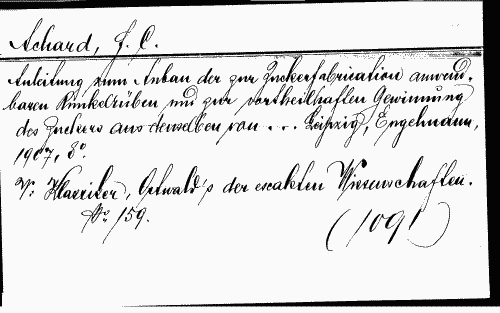 Achard, F. C.
Anleitung zum Anbau der zur Zuckerfabrication anwend-
baren Runkelrüben und zur vortheilhaften Gewinnung
des Zuckers aus denselben von ... Leipzig, Engelmann,
1907, 8º
V: Klassiker, Ostwald's der exakten Wissenschaften.
Nº 159.
(1091)